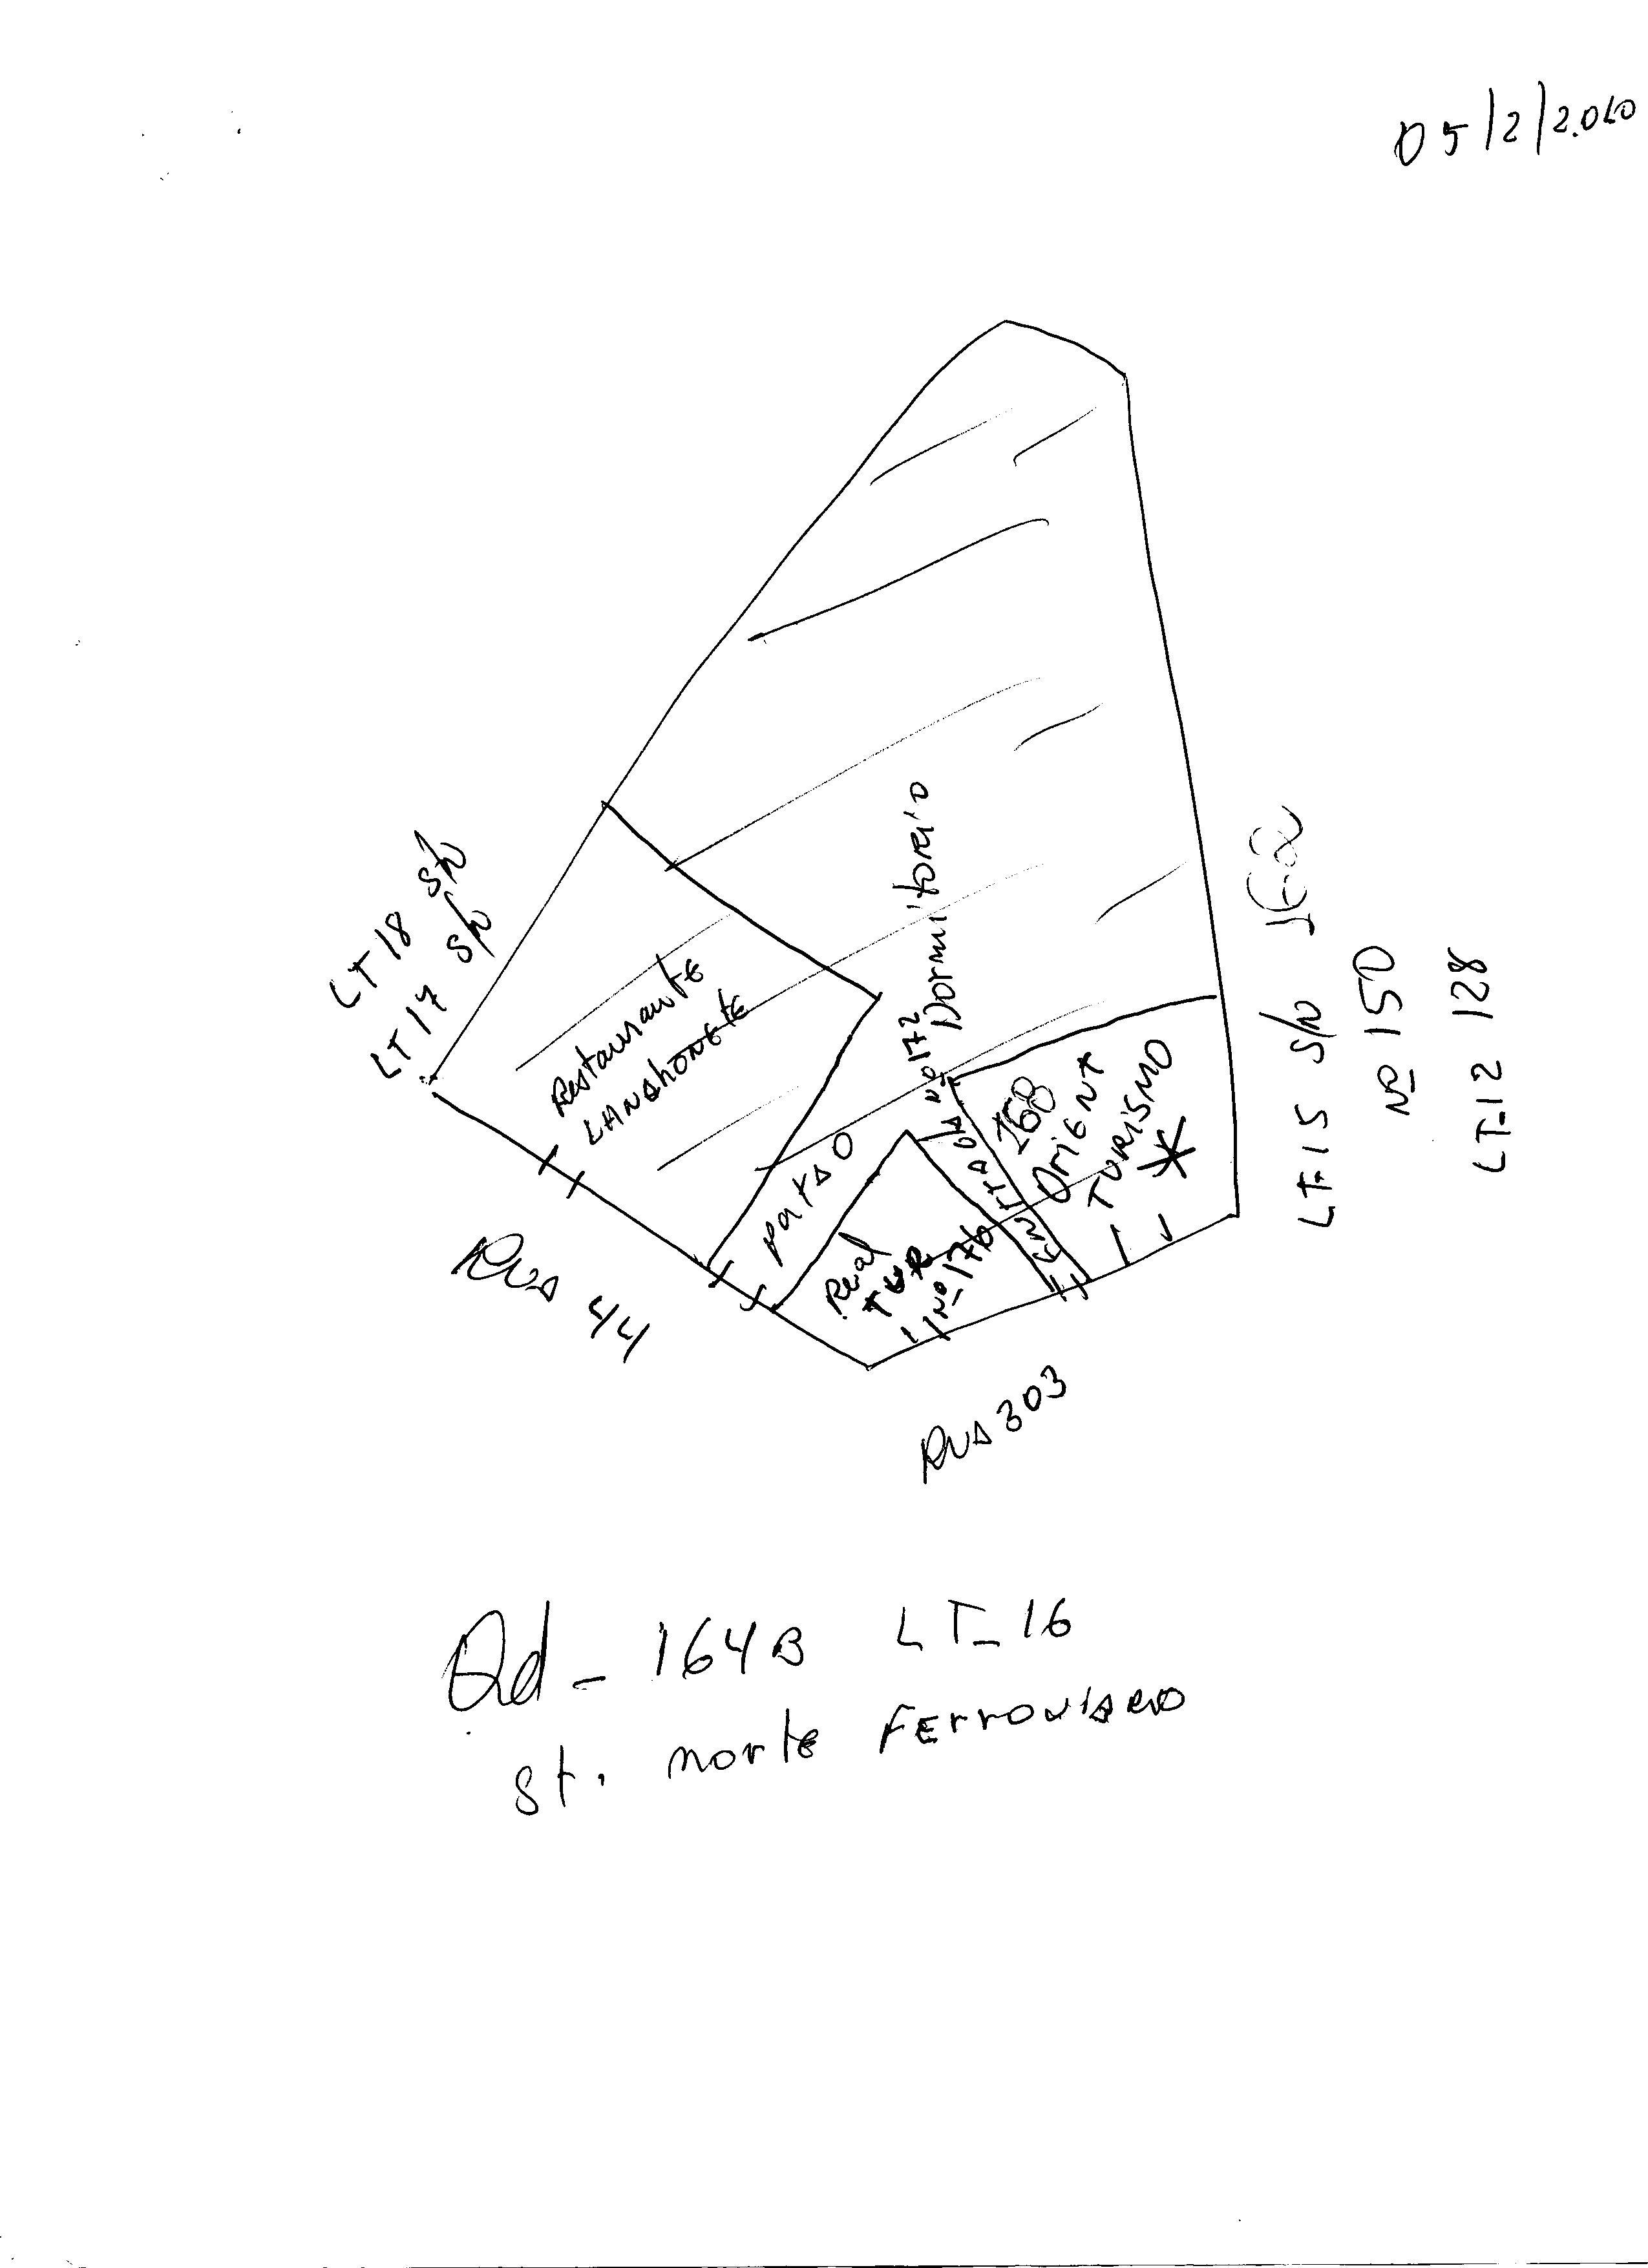 05/2/2.010
LT 18 s/n
LT 17 s/n
Restaurante
LANSHONETE
Dormitorio
nº 172
ENTTRADA
168
OriENt
TURiSMO
patso
Real
TUR
Nº 176
LT-15 s/n
Nº 150
LT-12 128
RUA 44
RUA 303
Qd - 164B LT-16
St. norte FErroviARio